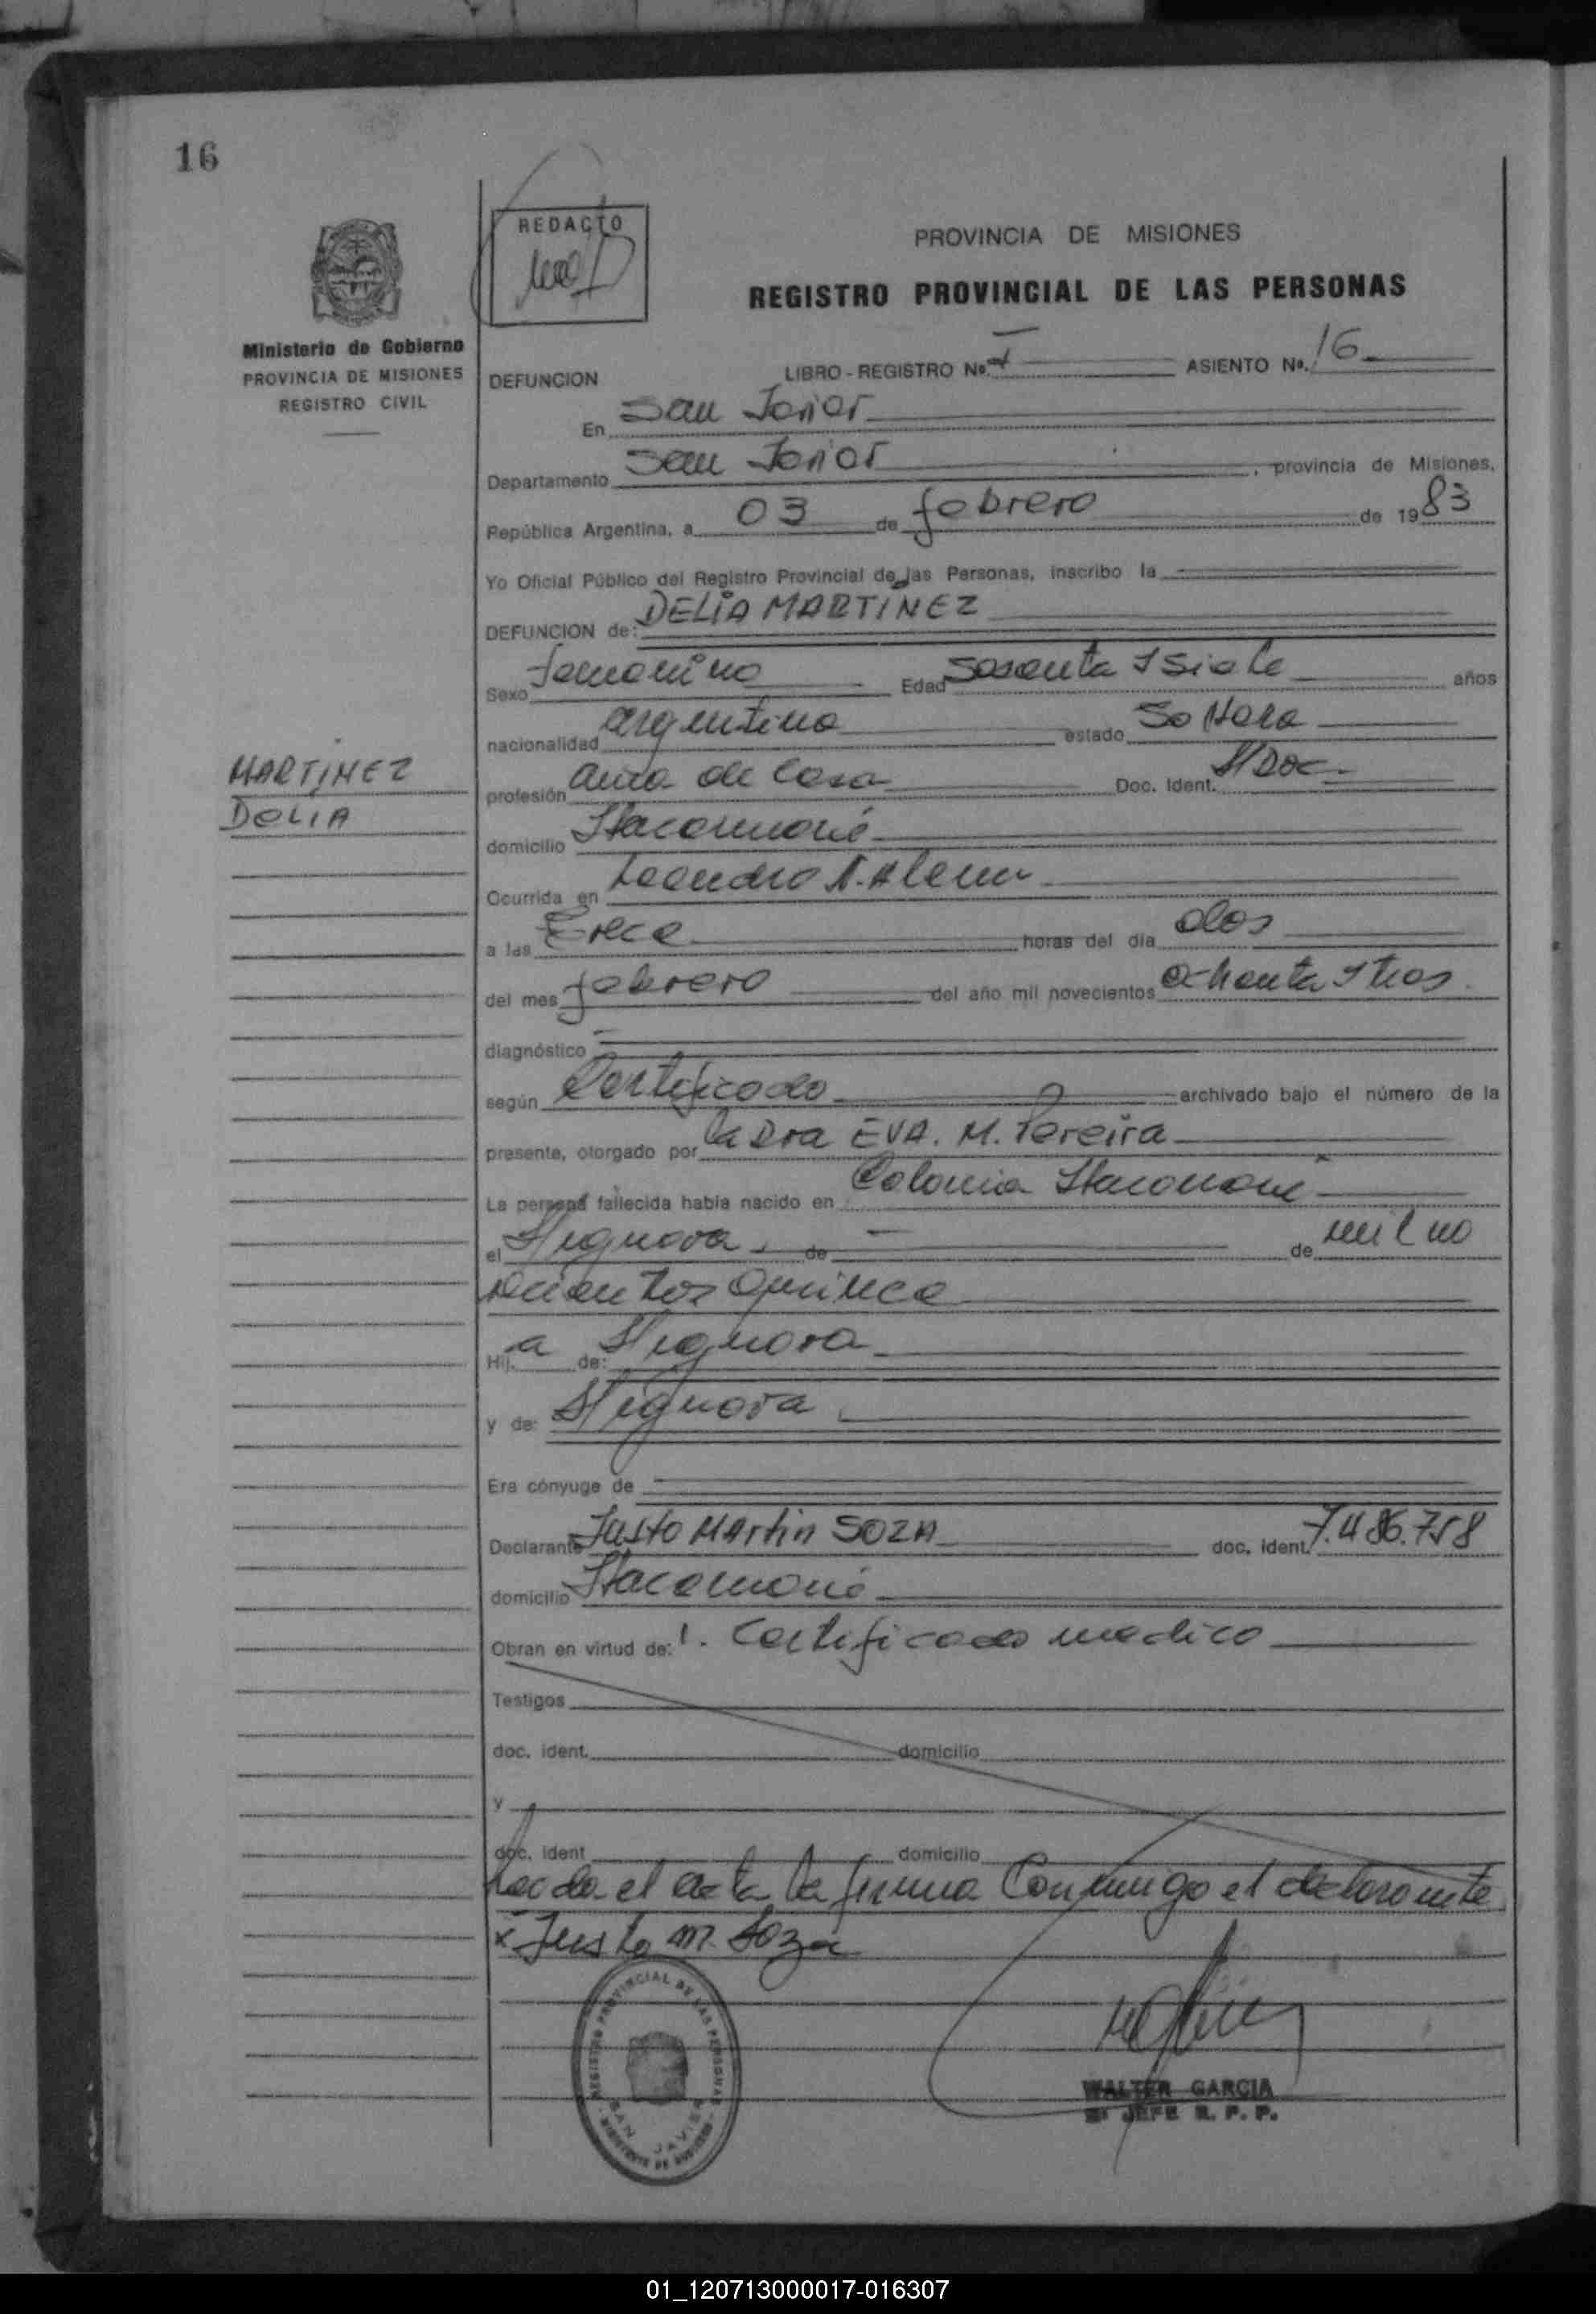 16
REDACTO
PROVINCIA DE MISIONES
REGISTRO PROVINCIAL DE LAS PERSONAS
Ministerio de Gobierno
PROVINCIA DE MISIONES
REGISTRO CIVIL
DEFUNCION LIBRO - REGISTRO Nº. I ASIENTO Nº. 16
En San Javier
Departamento San Javier, provincia de Misiones,
República Argentina, a 03 de febrero de 1983
Yo Oficial Público del Registro Provincial de las Personas, inscribo la
DEFUNCION de: DELIA MARTINEZ
Sexo femenino Edad Sesenta y Siete años
nacionalidad argentina estado Soltera
MARTINEZ
DELIA
profesión ama de Casa Doc. Ident. S/Doc
domicilio Itacaruaré
Ocurrida en Leandro N. Alem
a las Trece horas del día dos
del mes febrero del año mil novecientos ochenta y tres
diagnóstico
según Certificado archivado bajo el número de la
presente, otorgado por la Dra EVA. M. Pereira
La persona fallecida había nacido en Colonia Itacaruaré
el Se ignora de — de mil no
vecientos Quince
Hija de: Se ignora
y de: Se ignora
Era cónyuge de
Declarante Justo Martin SOZA doc. ident. 7.486.758
domicilio Itacaruaré
Obran en virtud de: 1. Certificado medico
Testigos
doc. ident. domicilio
y
doc. ident domicilio
Leida el acta la firma Conmigo el declarante
x Justo M. Soza
REGISTRO PROVINCIAL DE LAS PERSONAS
SAN JAVIER
WALTER GARCIA
JEFE R. P. P.
01_120713000017-016307